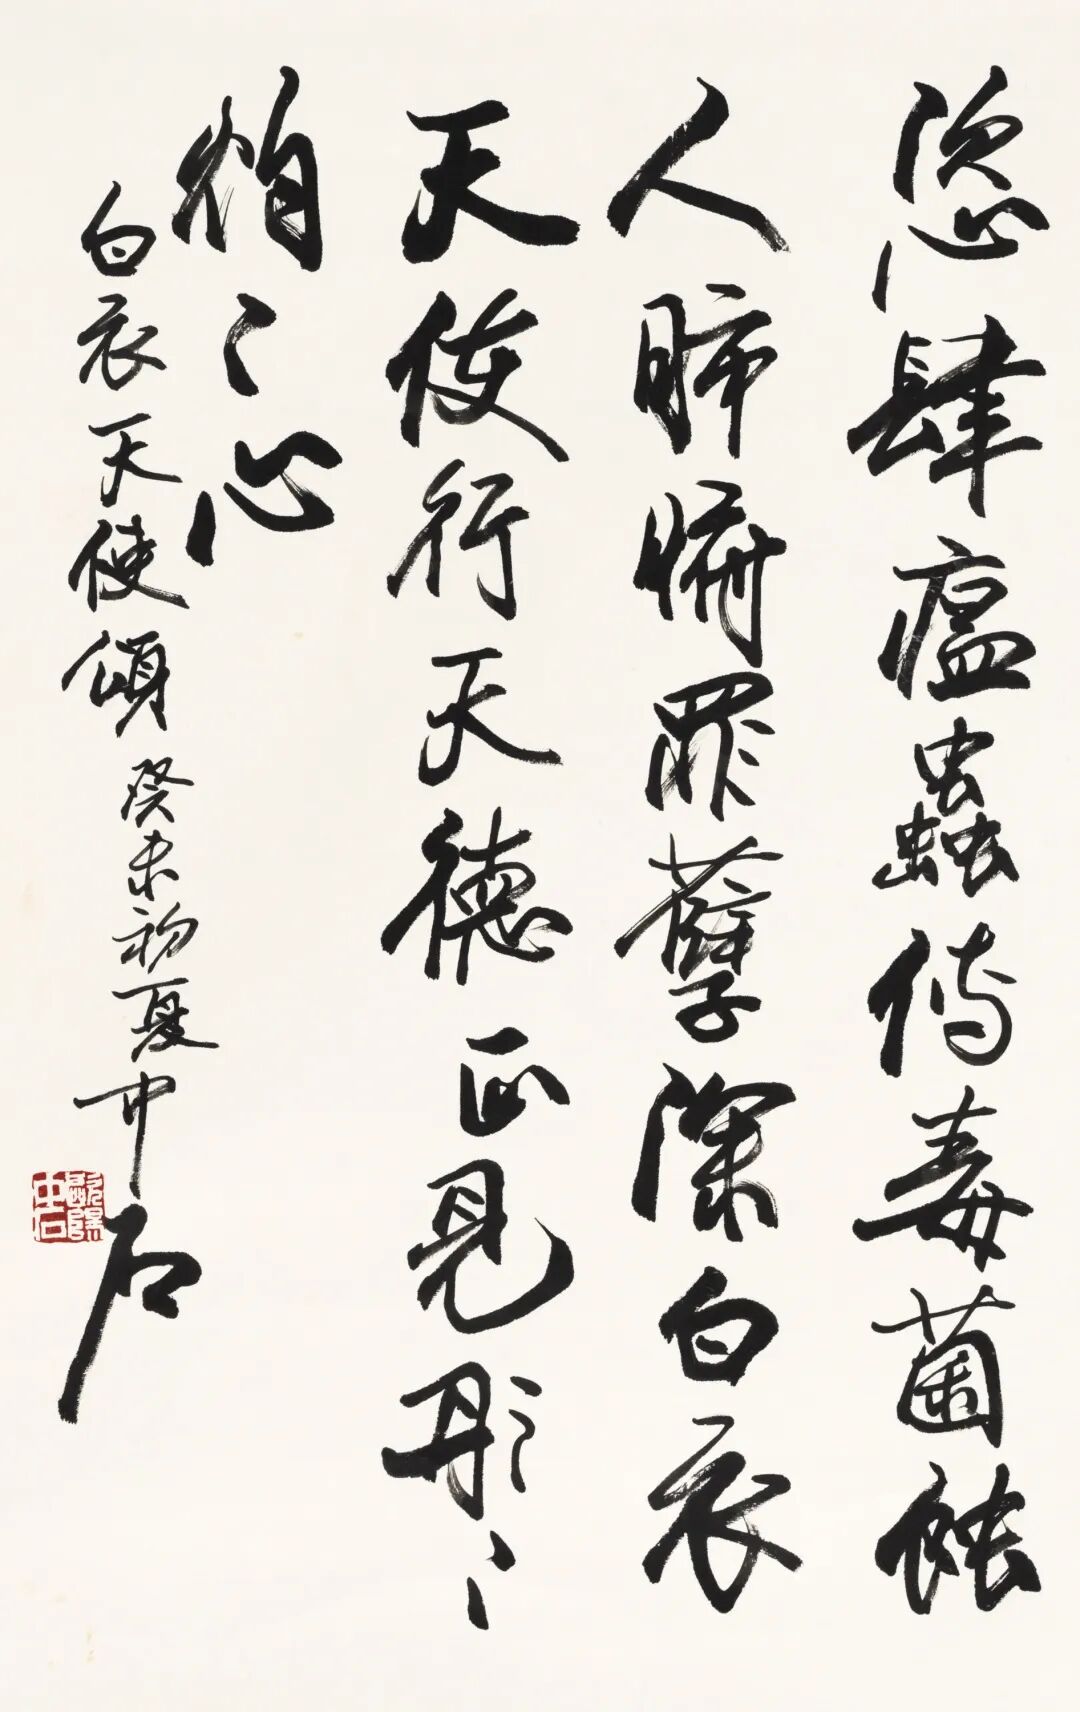 恣肆瘟蟲傳毒菌蝕
人肺腑罪孽深白衣
天使行天德正見彤〻
〻心
白衣天使頌 癸未初夏中石
歐陽中石